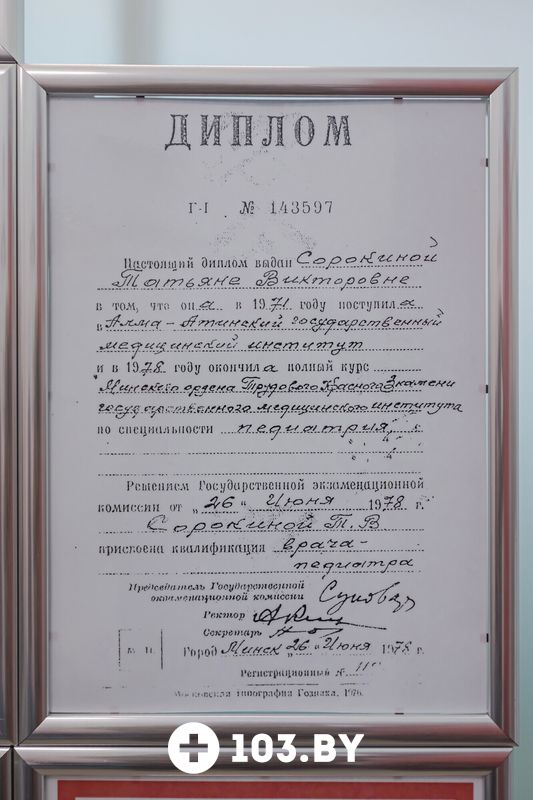 ДИПЛОМ
Г-I № 143597
Настоящий диплом выдан Сорокиной
Татьяне Викторовне
в том, что она в 1971 году поступила
в Алма-Атинский государственный
медицинский институт
и в 1978 году окончила полный курс
Минского ордена Трудового Красного Знамени
государственного медицинского института
по специальности педиатрия
Решением Государственной экзаменационной
комиссии от „26“ Июня 1978 г.
Сорокиной Т. В
присвоена квалификация врача-
педиатра
Председатель Государственной
экзаменационной комиссии
Ректор
Секретарь
Город Минск „26“ Июня 1978 г.
М. П.
Регистрационный №
Московская типография Гознака. 1976.
103.BY